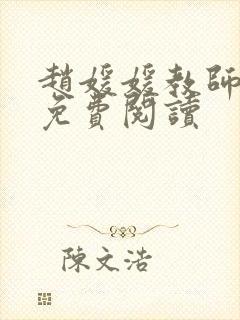 趙媛媛教師
免費閱讀
陳文浩